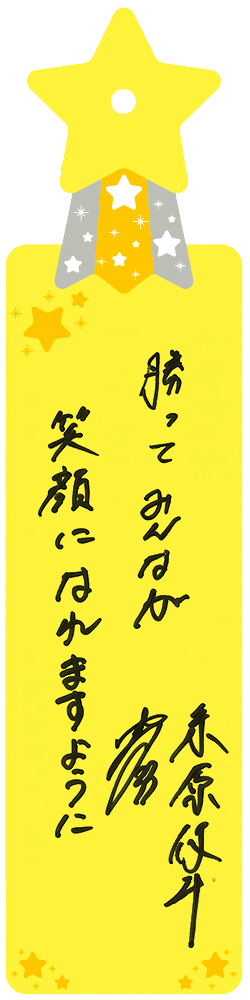 勝って みんなが
笑顔になれますように